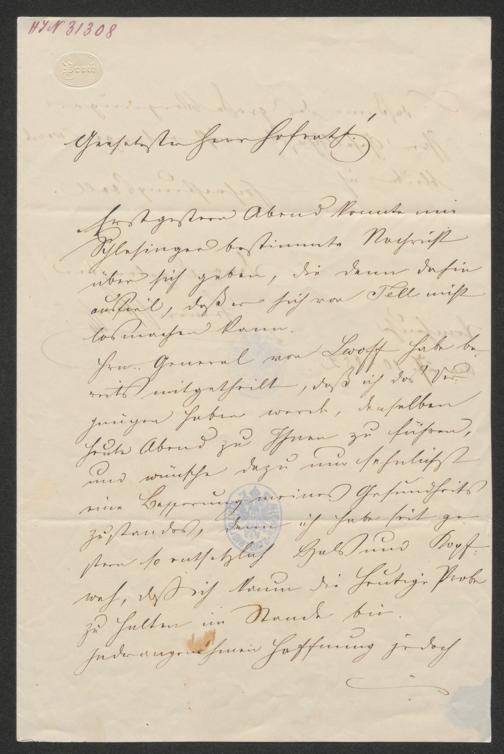 HIN 31308
Geehrtester Herr Hofrath!
Erst gestern Abend konnte mir
Schlesinger bestimmte Nachricht
über sich geben, die denn dahin
ausfiel, daß er sich von Tell nicht
losmachen kann.
Hrn. General von Lwoff habe be-
reits mitgetheilt, daß ich das Ver-
gnügen haben werde, denselben
heute Abend zu Ihnen zu führen,
und wünsche dazu nur sehnlichst
eine Besserung meines Gesundheits
zustandes, denn ich habe seit ge-
stern so entsetzlich Hals und Kopf-
weh, daß ich kaum die heutige Probe
zu halten im Stande bin.
In der angenehmen Hoffnung jedoch